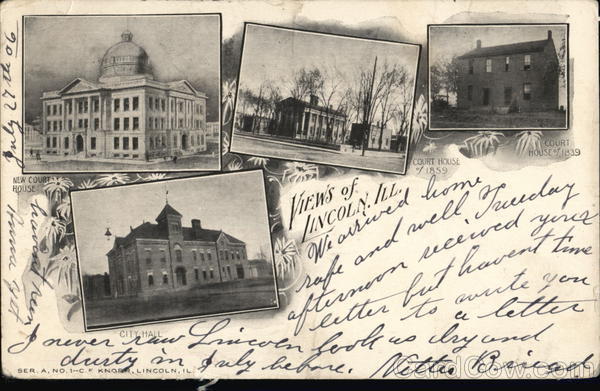 NEW COURT
HOUSE
COURT HOUSE
of 1859
COURT
HOUSE of 1839
VIEWS of
LINCOLN, ILL.
CITY HALL
We arrived home
safe and well Tuesday
afternoon received your
letter but havent time
to write you
a letter
I never saw Lincoln look as dry and
dusty in July before.
Nettie
July 27
SER. A, NO. 1—C.F. KNORR, LINCOLN, IL
CardCow.com